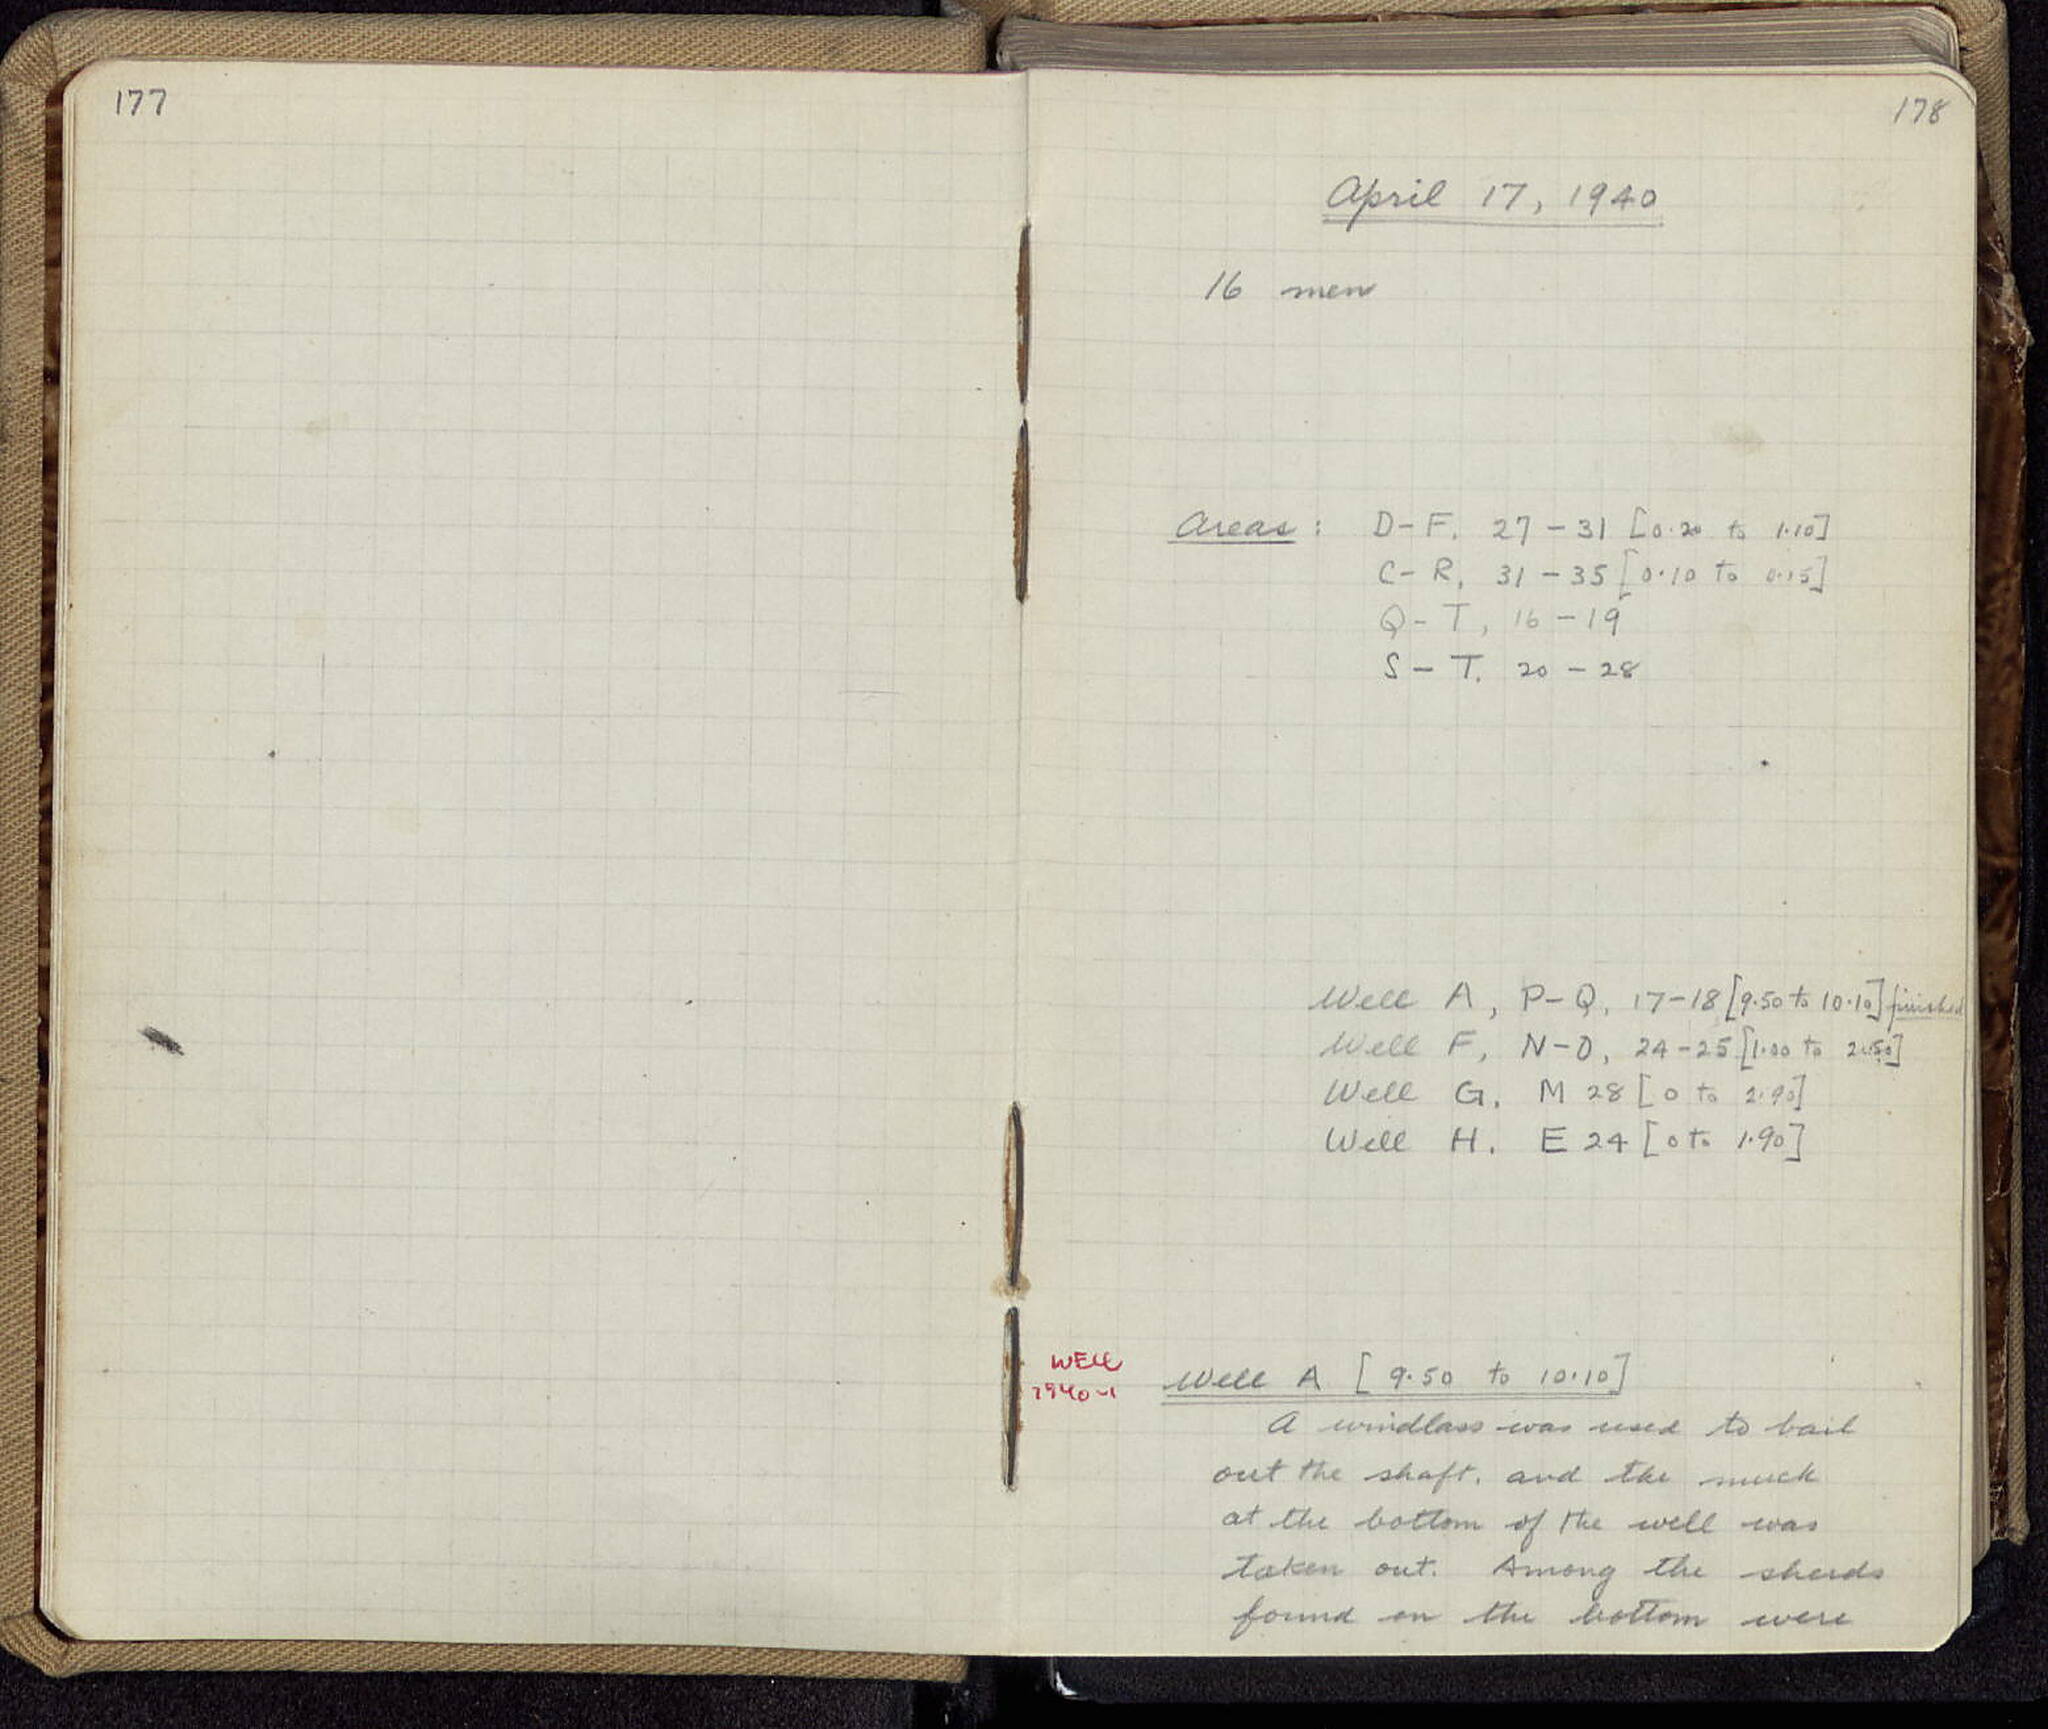 177
178
April 17, 1940
16 men
Areas: D-F, 27-31 [0.20 to 1.10]
C-R, 31-35 [0.10 to 0.15]
Q-T, 16-19
S-T. 20-28
Well A, P-Q, 17-18 [9.50 to 10.10] finished
Well F, N-O, 24-25 [1.00 to 2.50]
Well G. M 28 [0 to 2.90]
Well H. E 24 [0 to 1.90]
WELL
1940-1
Well A [9.50 to 10.10]
A windlass was used to bail
out the shaft, and the muck
at the bottom of the well was
taken out. Among the sherds
found on the bottom were